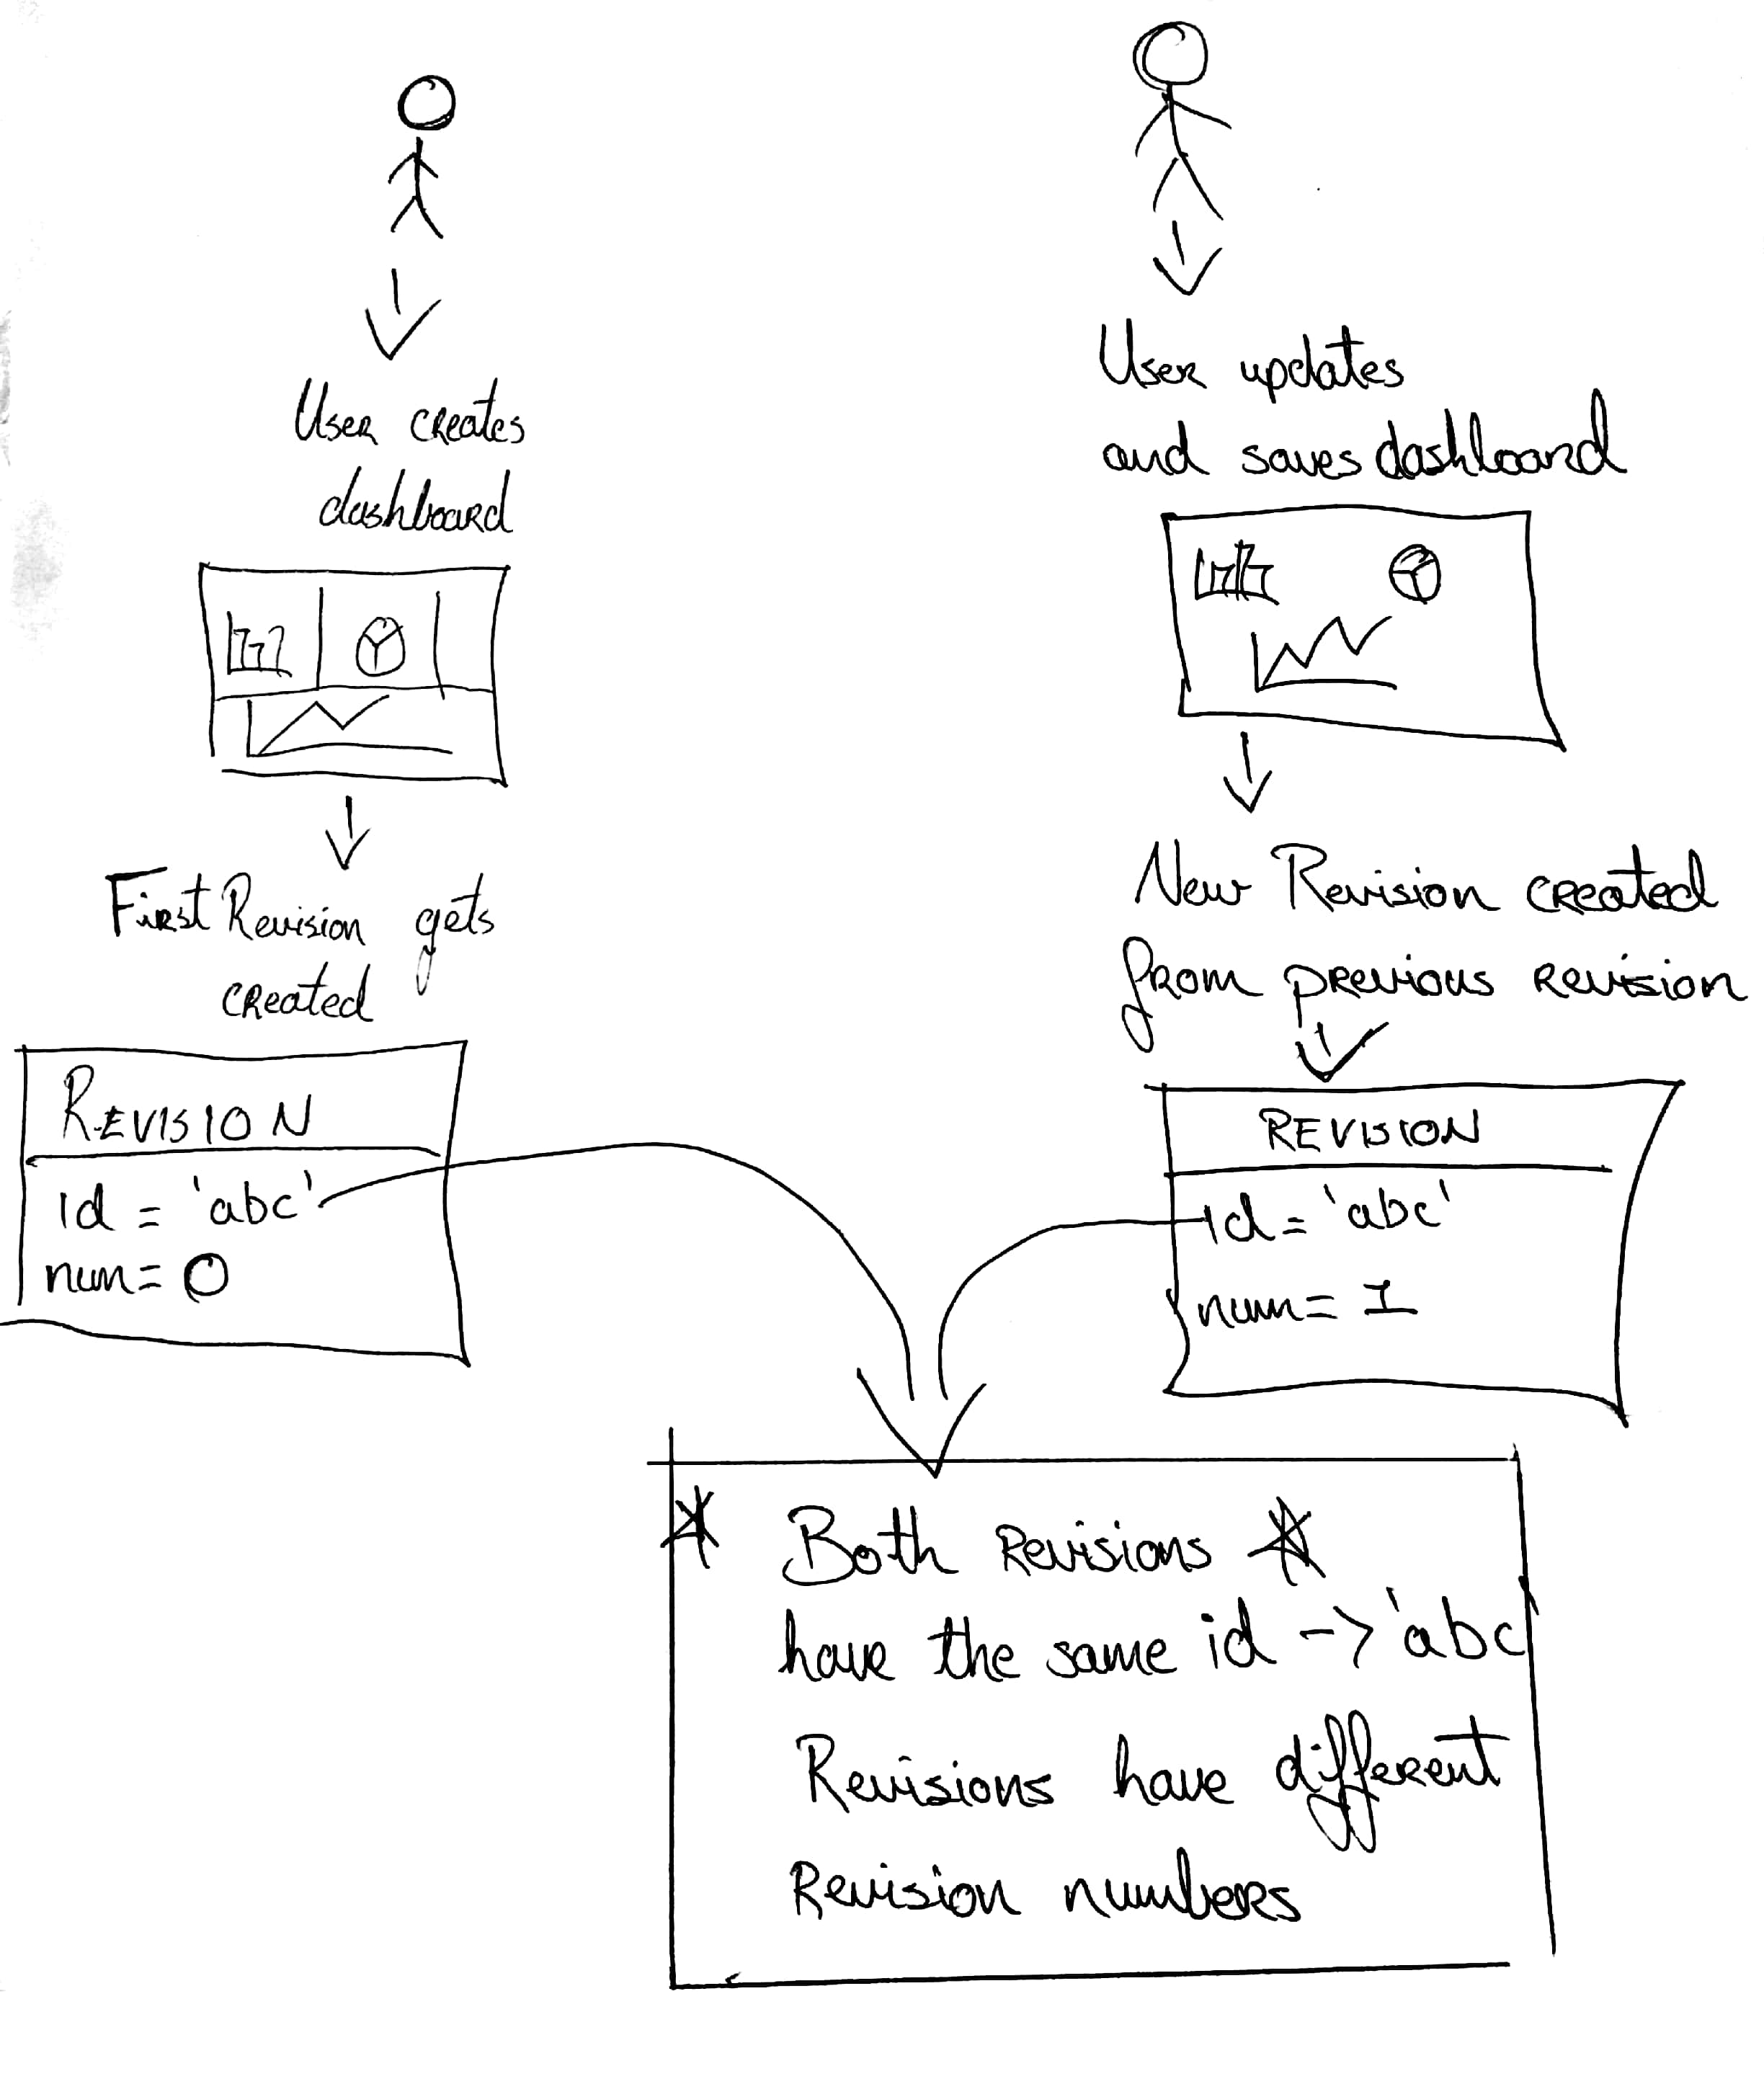 User creates
dashboard
First Revision gets
created
REVISION
id = 'abc'
num = 0
User updates
and saves dashboard
New Revision created
from previous revision
REVISION
id = 'abc'
num = 1
* Both Revisions *
have the same id -> 'abc
Revisions have different
Revision numbers